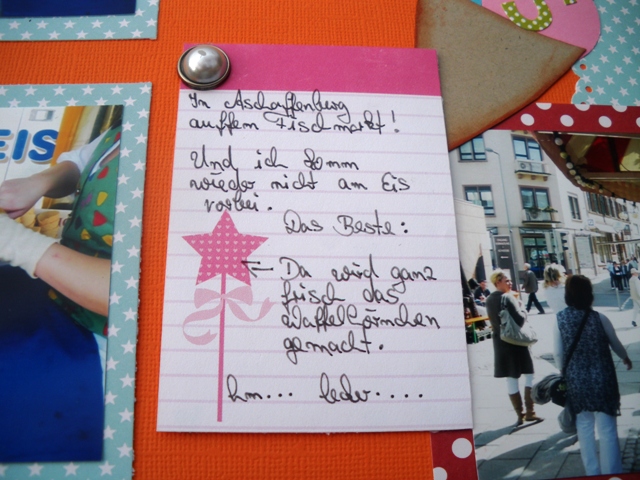 EIS
In Aschaffenberg
auffem Fischmarkt!
Und ich komm
wieder nicht am Eis
vorbei.
Das Beste:
Da wird ganz
frisch das
Waffelhörnchen
gemacht.
hm... lecker....